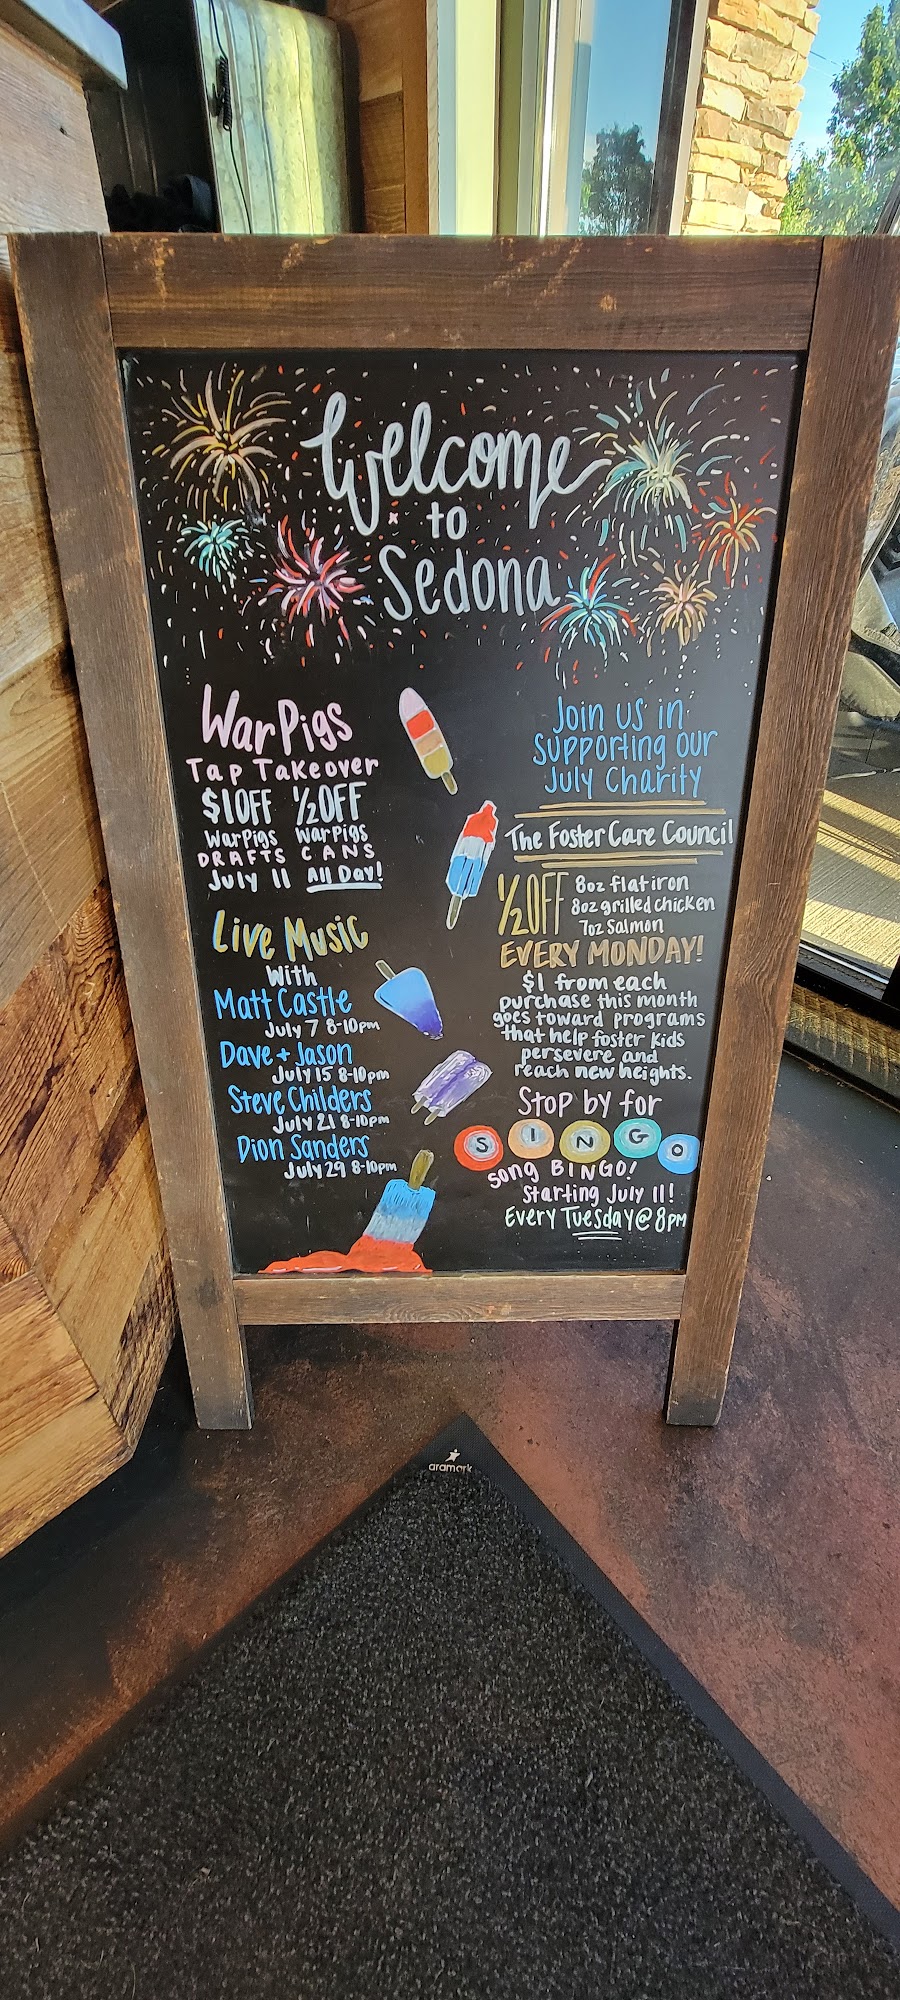 Welcome
to
Sedona
WarPigs
Tap Takeover
$1OFF ½OFF
WarPigs WarPigs
DRAFTS CANS
July 11 All Day!
Live Music
With
Matt Castle
July 7 8-10pm
Dave + Jason
July 15 8-10pm
Steve Childers
July 21 8-10pm
Dion Sanders
July 29 8-10pm
Join us in
supporting our
July Charity
The Foster Care Council
½OFF
8oz flatiron
8oz grilled chicken
7oz Salmon
EVERY MONDAY!
$1 from each
purchase this month
goes toward programs
that help foster kids
persevere and
reach new heights.
Stop by for
SINGO
song BINGO!
starting July 11!
Every Tuesday @ 8PM
aramark